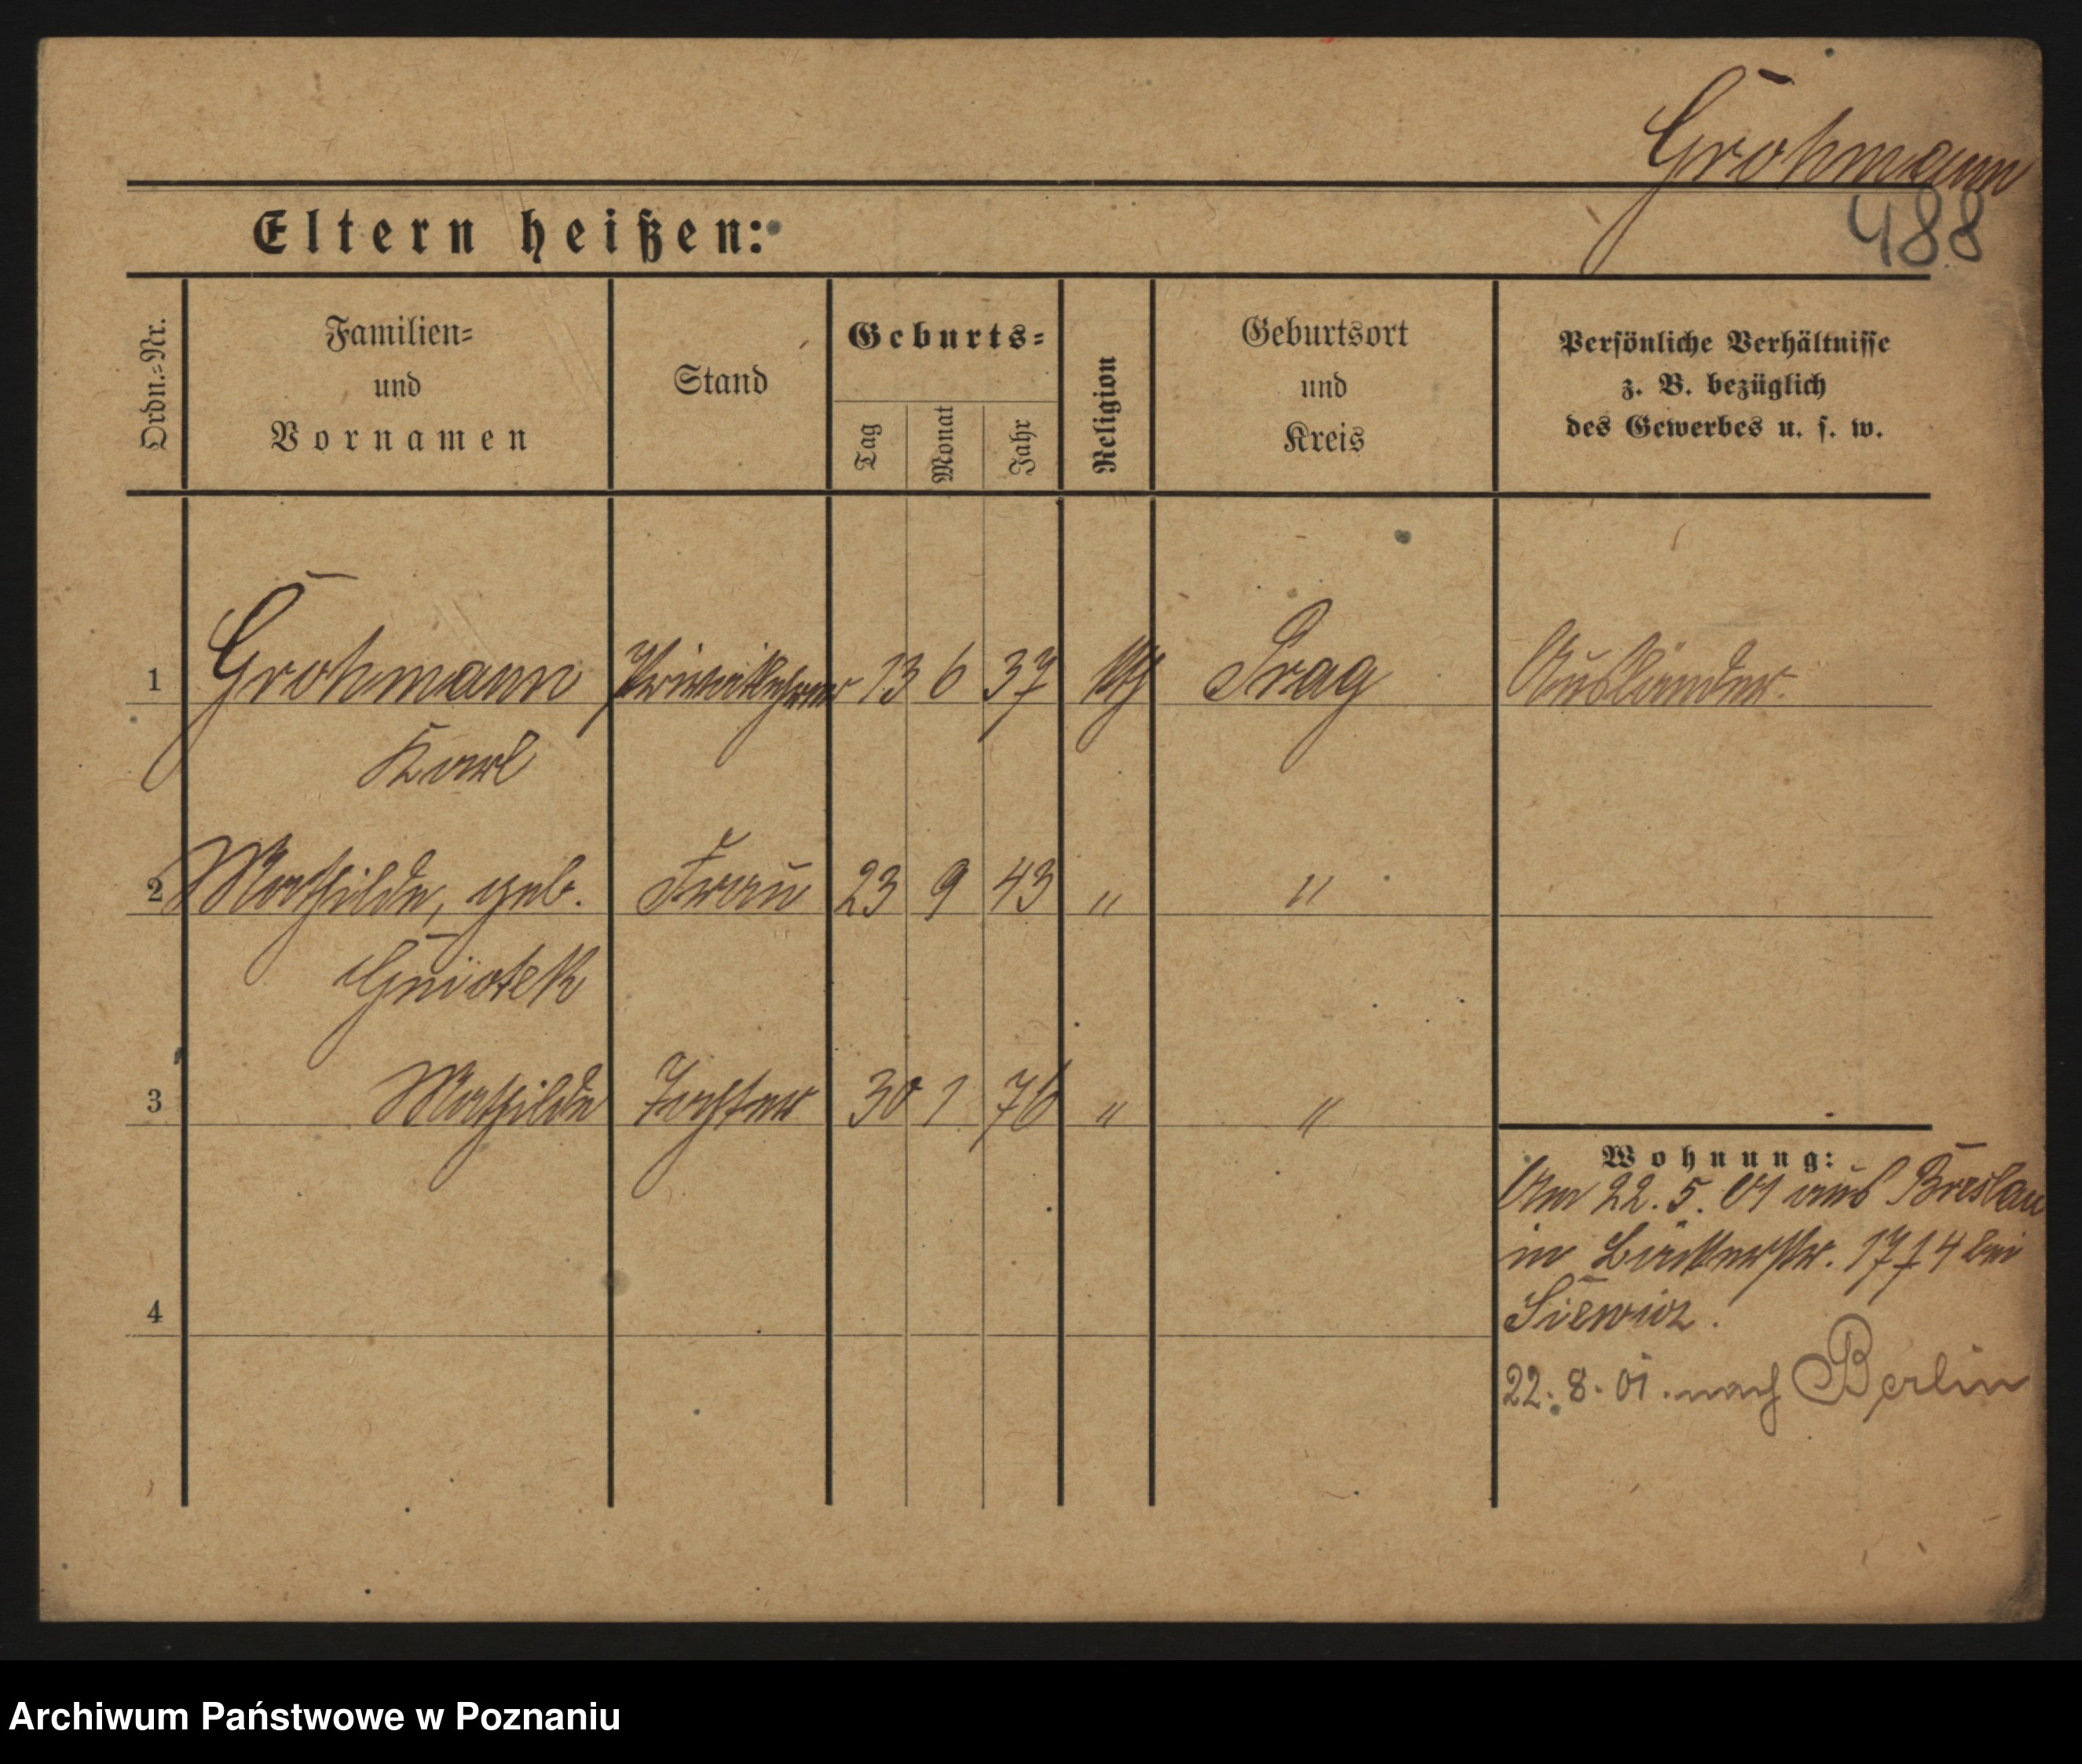 Grohmann
488
Eltern heißen:
Ordn.=Nr.
Familien=
und
Vornamen
Stand
Geburts=
Tag
Monat
Jahr
Religion
Geburtsort
und
Kreis
Persönliche Verhältnisse
z. B. bezüglich
des Gewerbes u. s. w.
1 Grohmann 13 6 37 Prag Ausländer.
Karl
2 Mathilde, geb. Frau 23 9 43 " "
3 Mathilde Tochter 30 1 76 " "
Wohnung:
Am 22. 5. 01 aus Breslau
in bei
4
22. 8. 01. nach Berlin
Archiwum Państwowe w Poznaniu